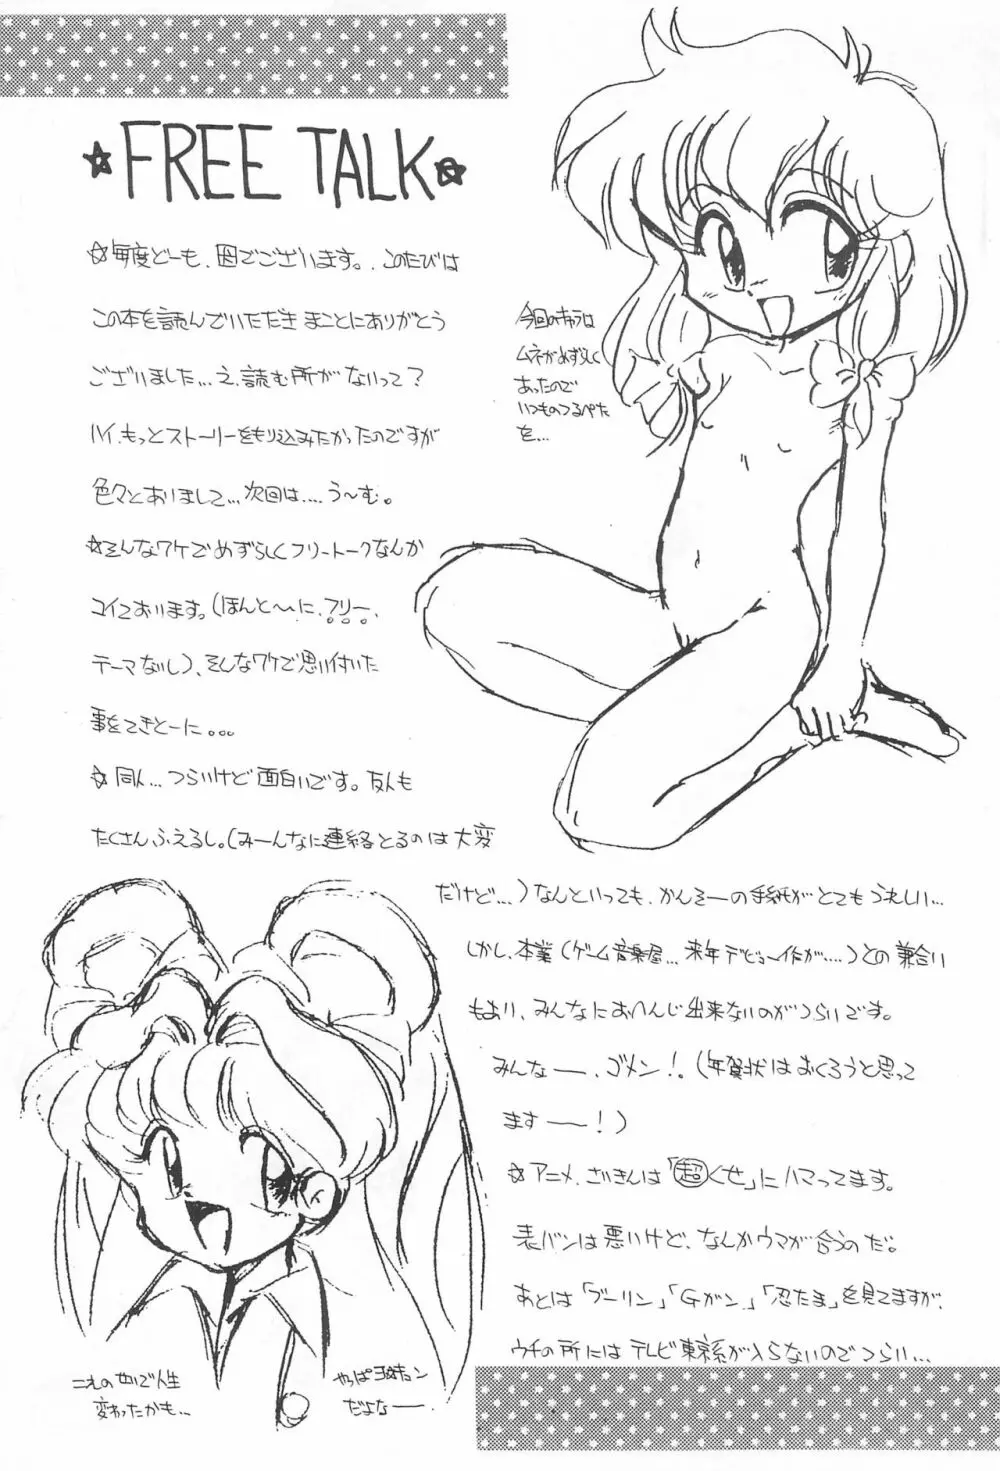 FREE TALK
☆毎度どーも、困でございます。このたびは
この本を読んでいただき まことにありがとう
ございました…え、読む所がないって?
ハイ、もっとストーリーをもり込みたかったのですが
色々とありまして…次回は....う〜む。
☆そんなワケでめずらしくフリートークなんか
コイております。(ほんと〜に、フリー、
テーマなし)、そんなワケで思い付いた
事をてきとーに。。。
☆同人…つらいけど面白いです。友人も
たくさんふえるし。(みーんなに連絡とるのは大変
だけど…)なんといっても、かんそーの手紙がとてもうれしい…
しかし、本業(ゲーム音楽屋…来年デビュー作が....)との兼合い
もあり、みんなにおへんじ出来ないのがつらいです。
みんなー、ゴメン!。(年賀状はおくろうと思って
ますー!)
☆アニメ、さいきんは「超くせ」にハマってます。
表バンは悪いけど、なんかウマが合うのだ。
あとは「ヅーリン」「Gガン」「忍たま」を見てますが、
ウチの所にはテレビ東京系が入らないのでつらい…
これのせいで人生
変わったかも…
だよなー.